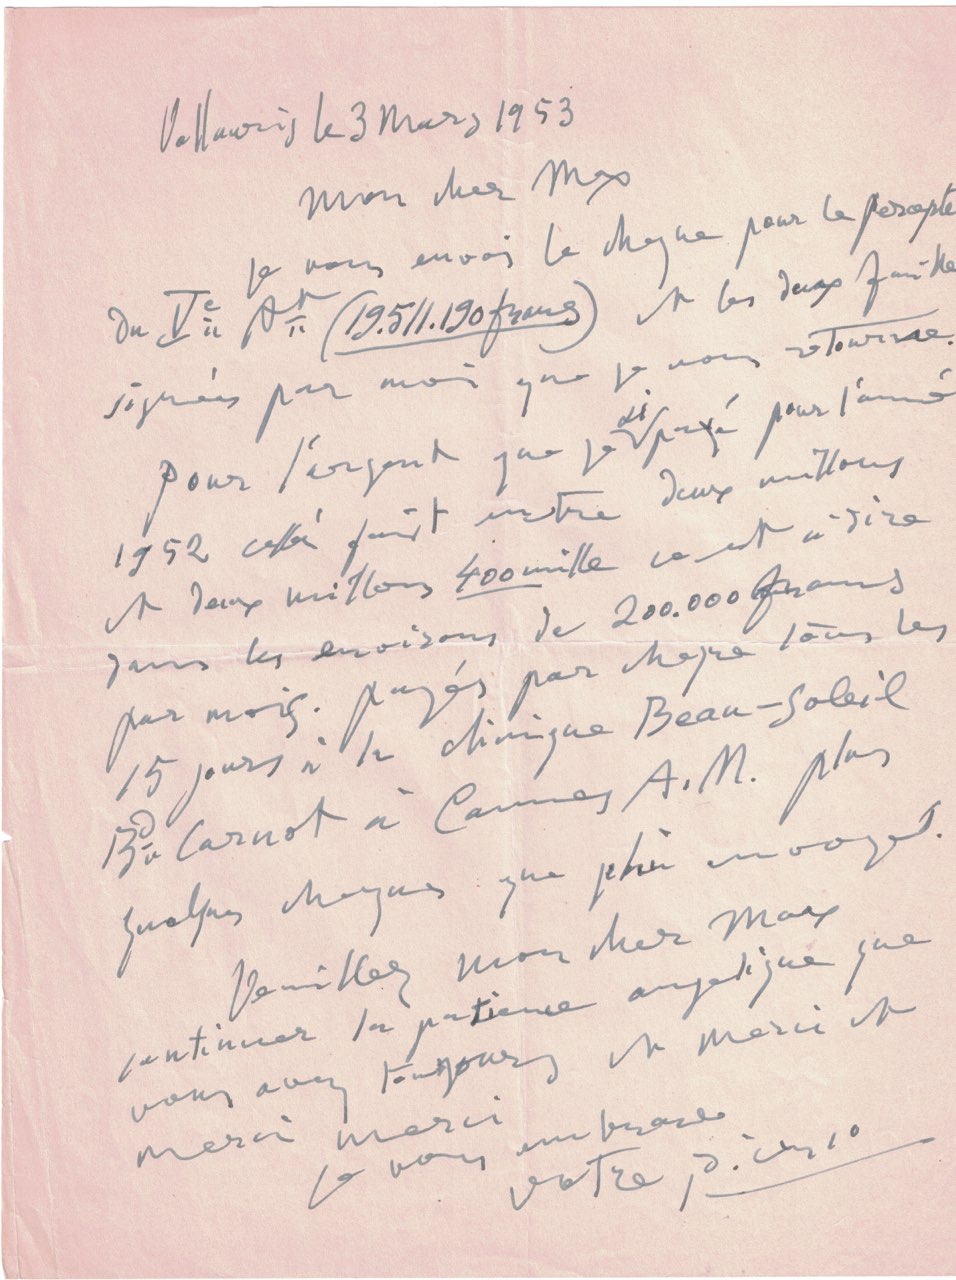 Vallauris le 3 Mars 1953
Mon cher Max
je vous envoi le cheque pour le percepte
du Ve At (19.511.190 francs) et les deux feuilles
signées par moi que je vous retourne.
pour l'argent que je ai payé pour l'anné
1952 cella fait entre deux millons
et deux millons 400 mille ce est à dire
dans les environs de 200.000 francs
par mois. payés par cheque tous les
15 jours à la clinique Beau-Soleil
Bd Carnot à Cannes A.M. plus
quelques cheques que envoyé.
Veuillez mon cher Max
continuer la patience angelique que
vous avez toujours et merci et
merci merci
je vous embrasse
votre Picasso